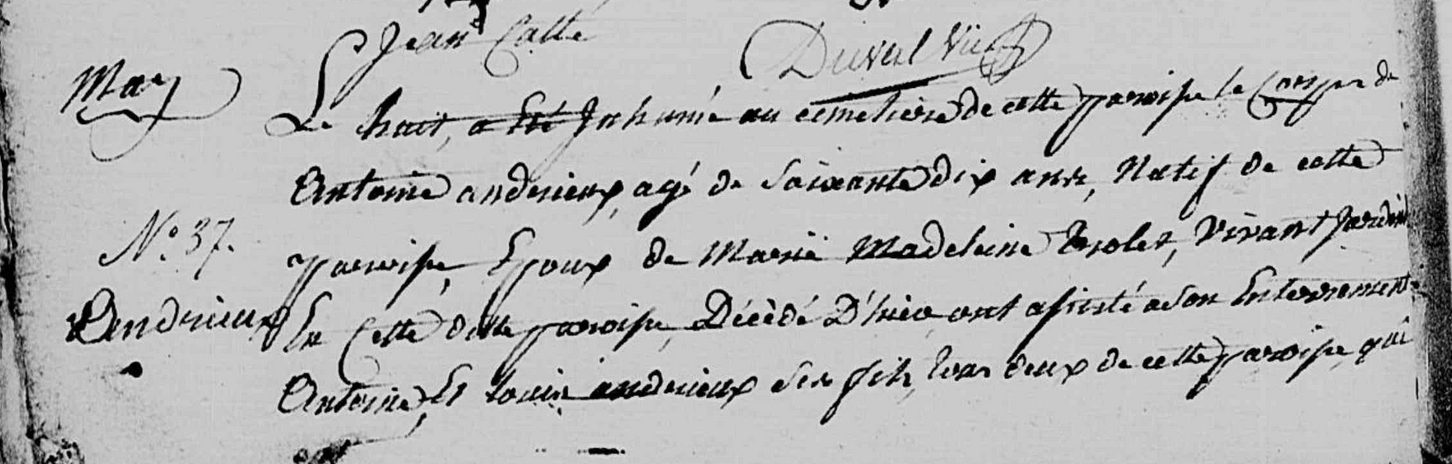 Jean Catté
Duval Vic
May
Le huit, a Eté Inhumé au cimetiere de cette paroisse le Corps de
Antoine andrieux, agé de Soixante dix ans, Natif de cette
No. 37.
paroisse, Epoux de Marie Madeleine Vivant
Andrieux
En Cette ditte paroisse, Décédé D'hier ont assisté a son Enterrement
Antoine, Et Louis andrieux ses fils, tous deux de cette paroisse, qui